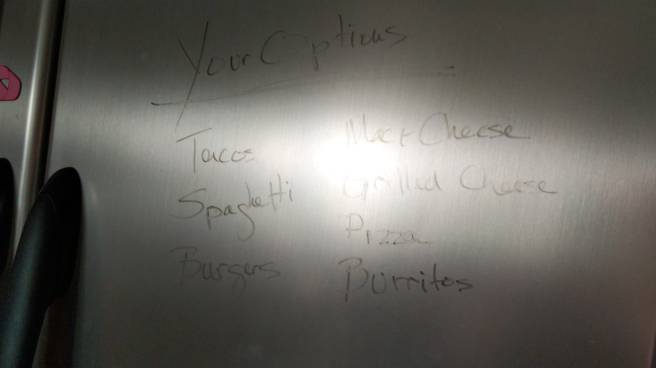 Your Options
Tacos
Spaghetti
Burgers
Mac + Cheese
Grilled Cheese
Pizza
Burritos